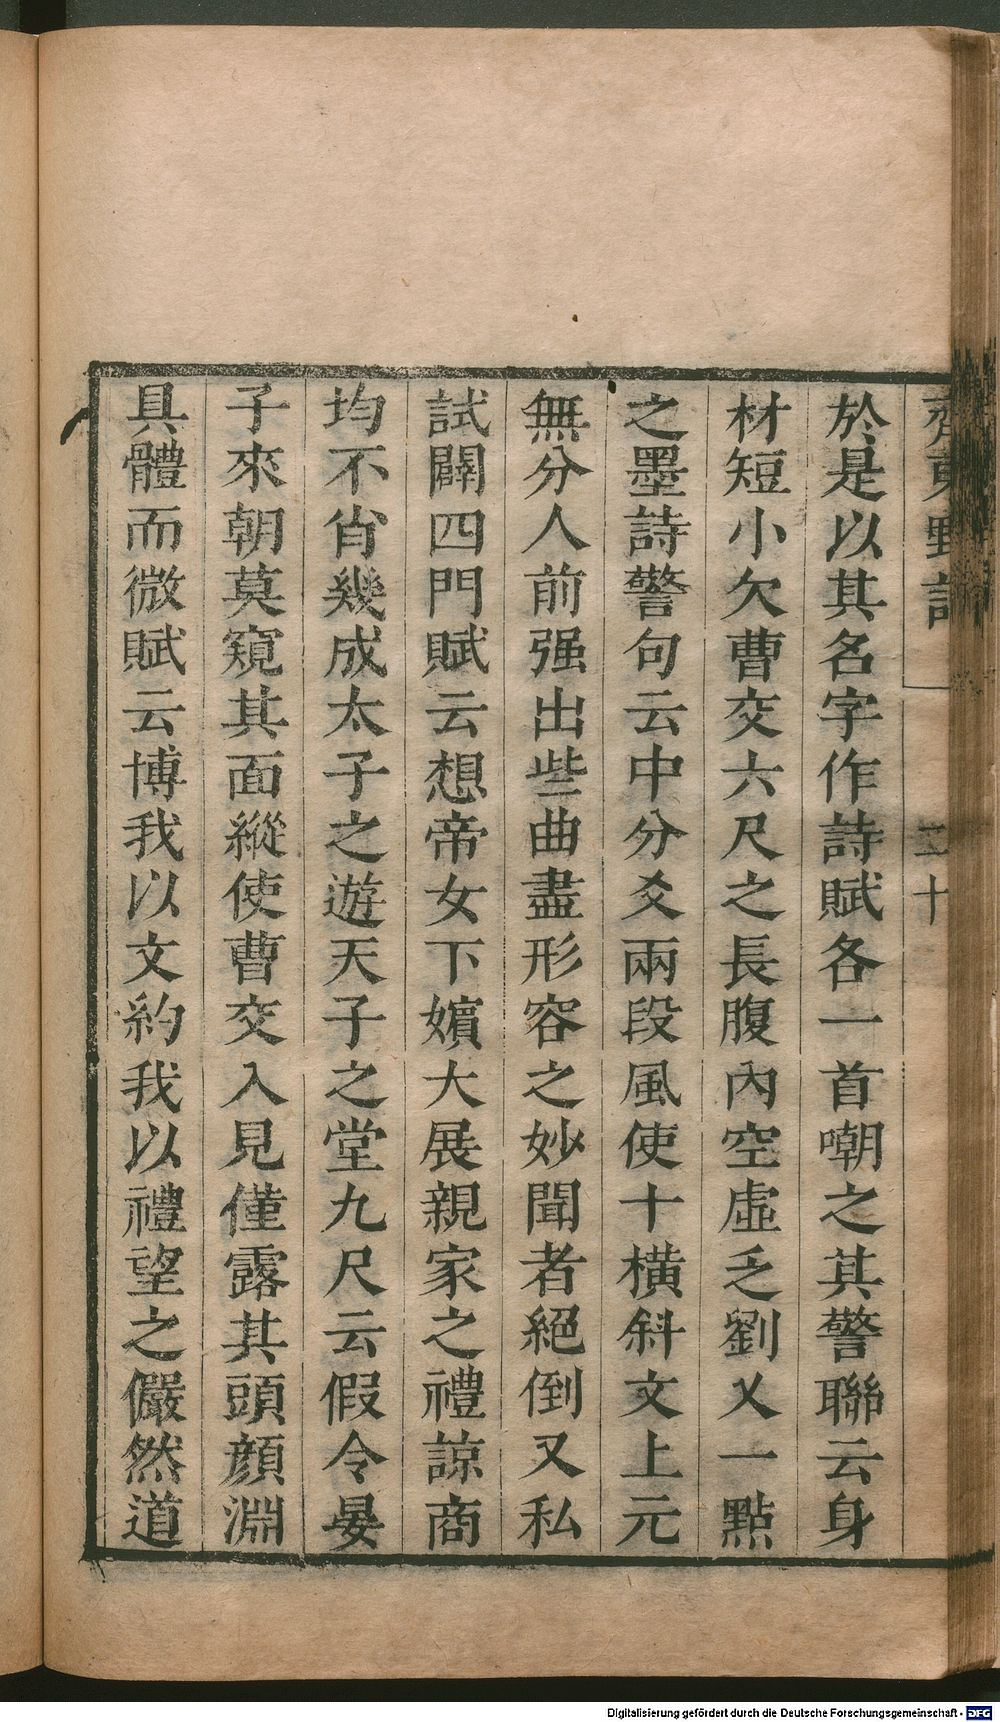 齊東野語
二十
於是以其名字作詩賦各一首嘲之其警聯云身
材短小欠曹交六尺之長腹內空虛乏劉乂一點
之墨詩警句云中分爻兩段風使十橫斜文上元
無分人前强出些曲盡形容之妙聞者絕倒又私
試闢四門賦云想帝女下嬪大展親家之禮諒商
均不肖幾成太子之遊天子之堂九尺云假令晏
子來朝莫窺其面縱使曹交入見僅露其頭顔淵
具體而微賦云博我以文約我以禮望之儼然道
Digitalisierung gefördert durch die Deutsche Forschungsgemeinschaft - DFG